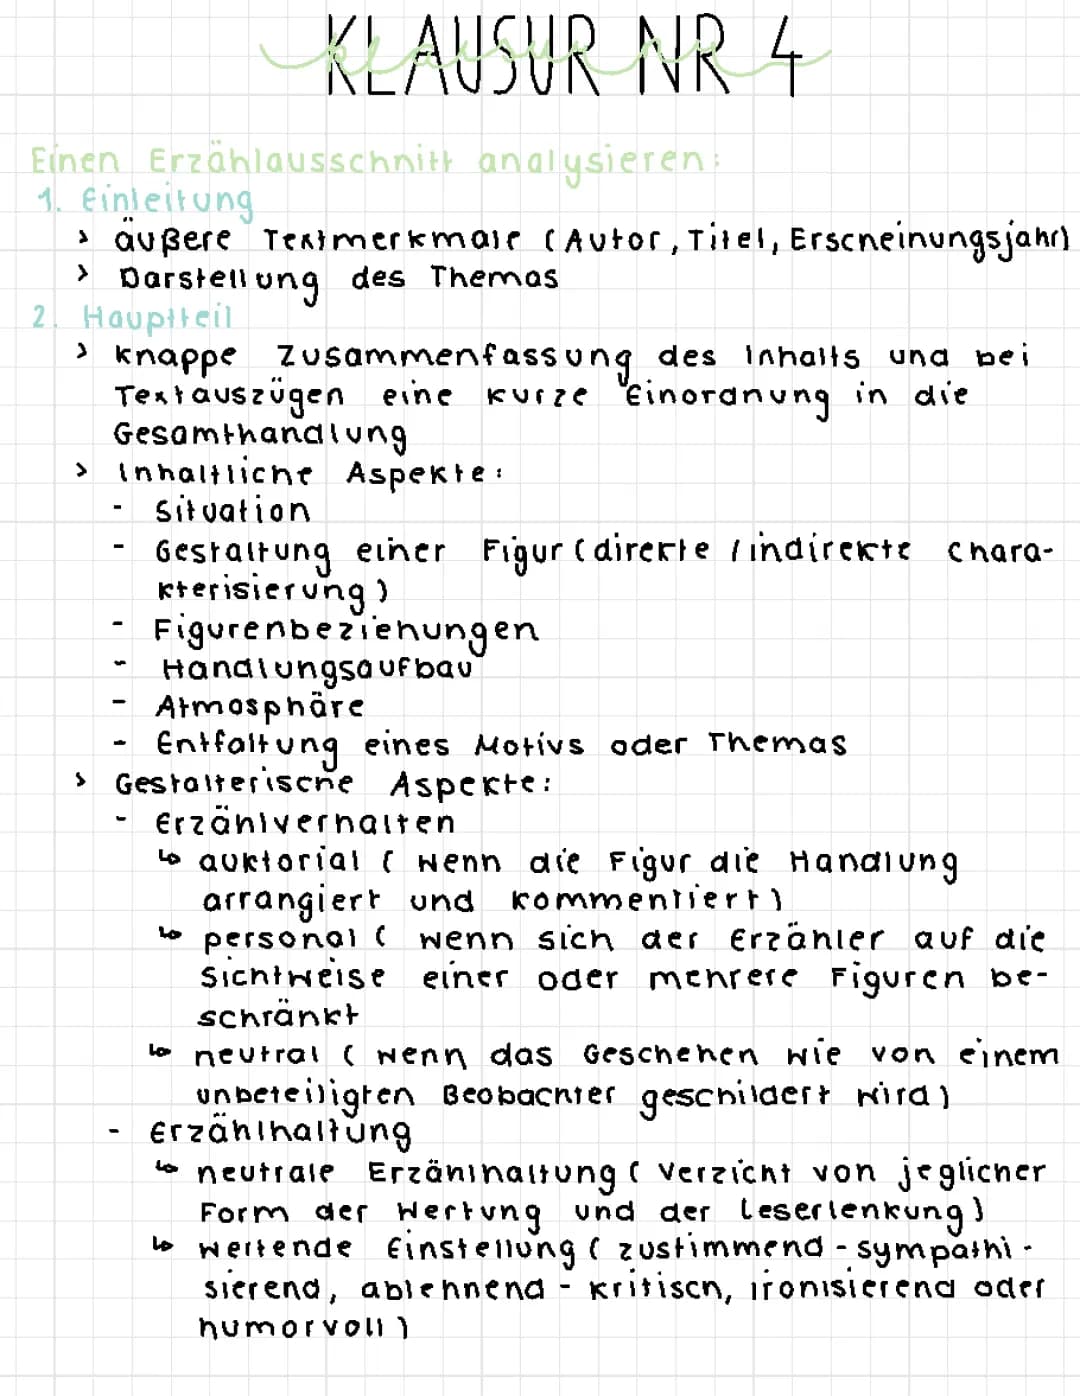 KLAUSUR NR 4
klausur nr
Einen Erzählausschnitt analysieren:
1. Einleitung
> äußere Textmerkmale (Autor, Titel, Erscheinungsjahr)
> Darstellung des Themas
2. Hauptteil
> knappe Zusammenfassung des Inhalts und bei
Textauszügen eine kurze Einordnung in die
Gesamthandlung
> Inhaltliche Aspekte:
- Situation
- Gestaltung einer Figur (direkte / indirekte Chara-
kterisierung)
- Figurenbeziehungen
- Handlungsaufbau
- Atmosphäre
- Entfaltung eines Motivs oder Themas
> Gestalterische Aspekte:
- Erzählverhalten
↳ auktorial (wenn die Figur die Handlung
arrangiert und kommentiert)
↳ personal ( wenn sich der Erzähler auf die
Sichtweise einer oder mehrere Figuren be-
schränkt
↳ neutral ( wenn das Geschehen wie von einem
unbeteiligten Beobachter geschildert wird)
- Erzählhaltung
↳ neutrale Erzählhaltung ( Verzicht von jeglicher
Form der Wertung und der Leserlenkung)
↳ wertende Einstellung ( zustimmend - sympathi-
sierend, ablehnend - kritisch, ironisierend oder
humorvoll)